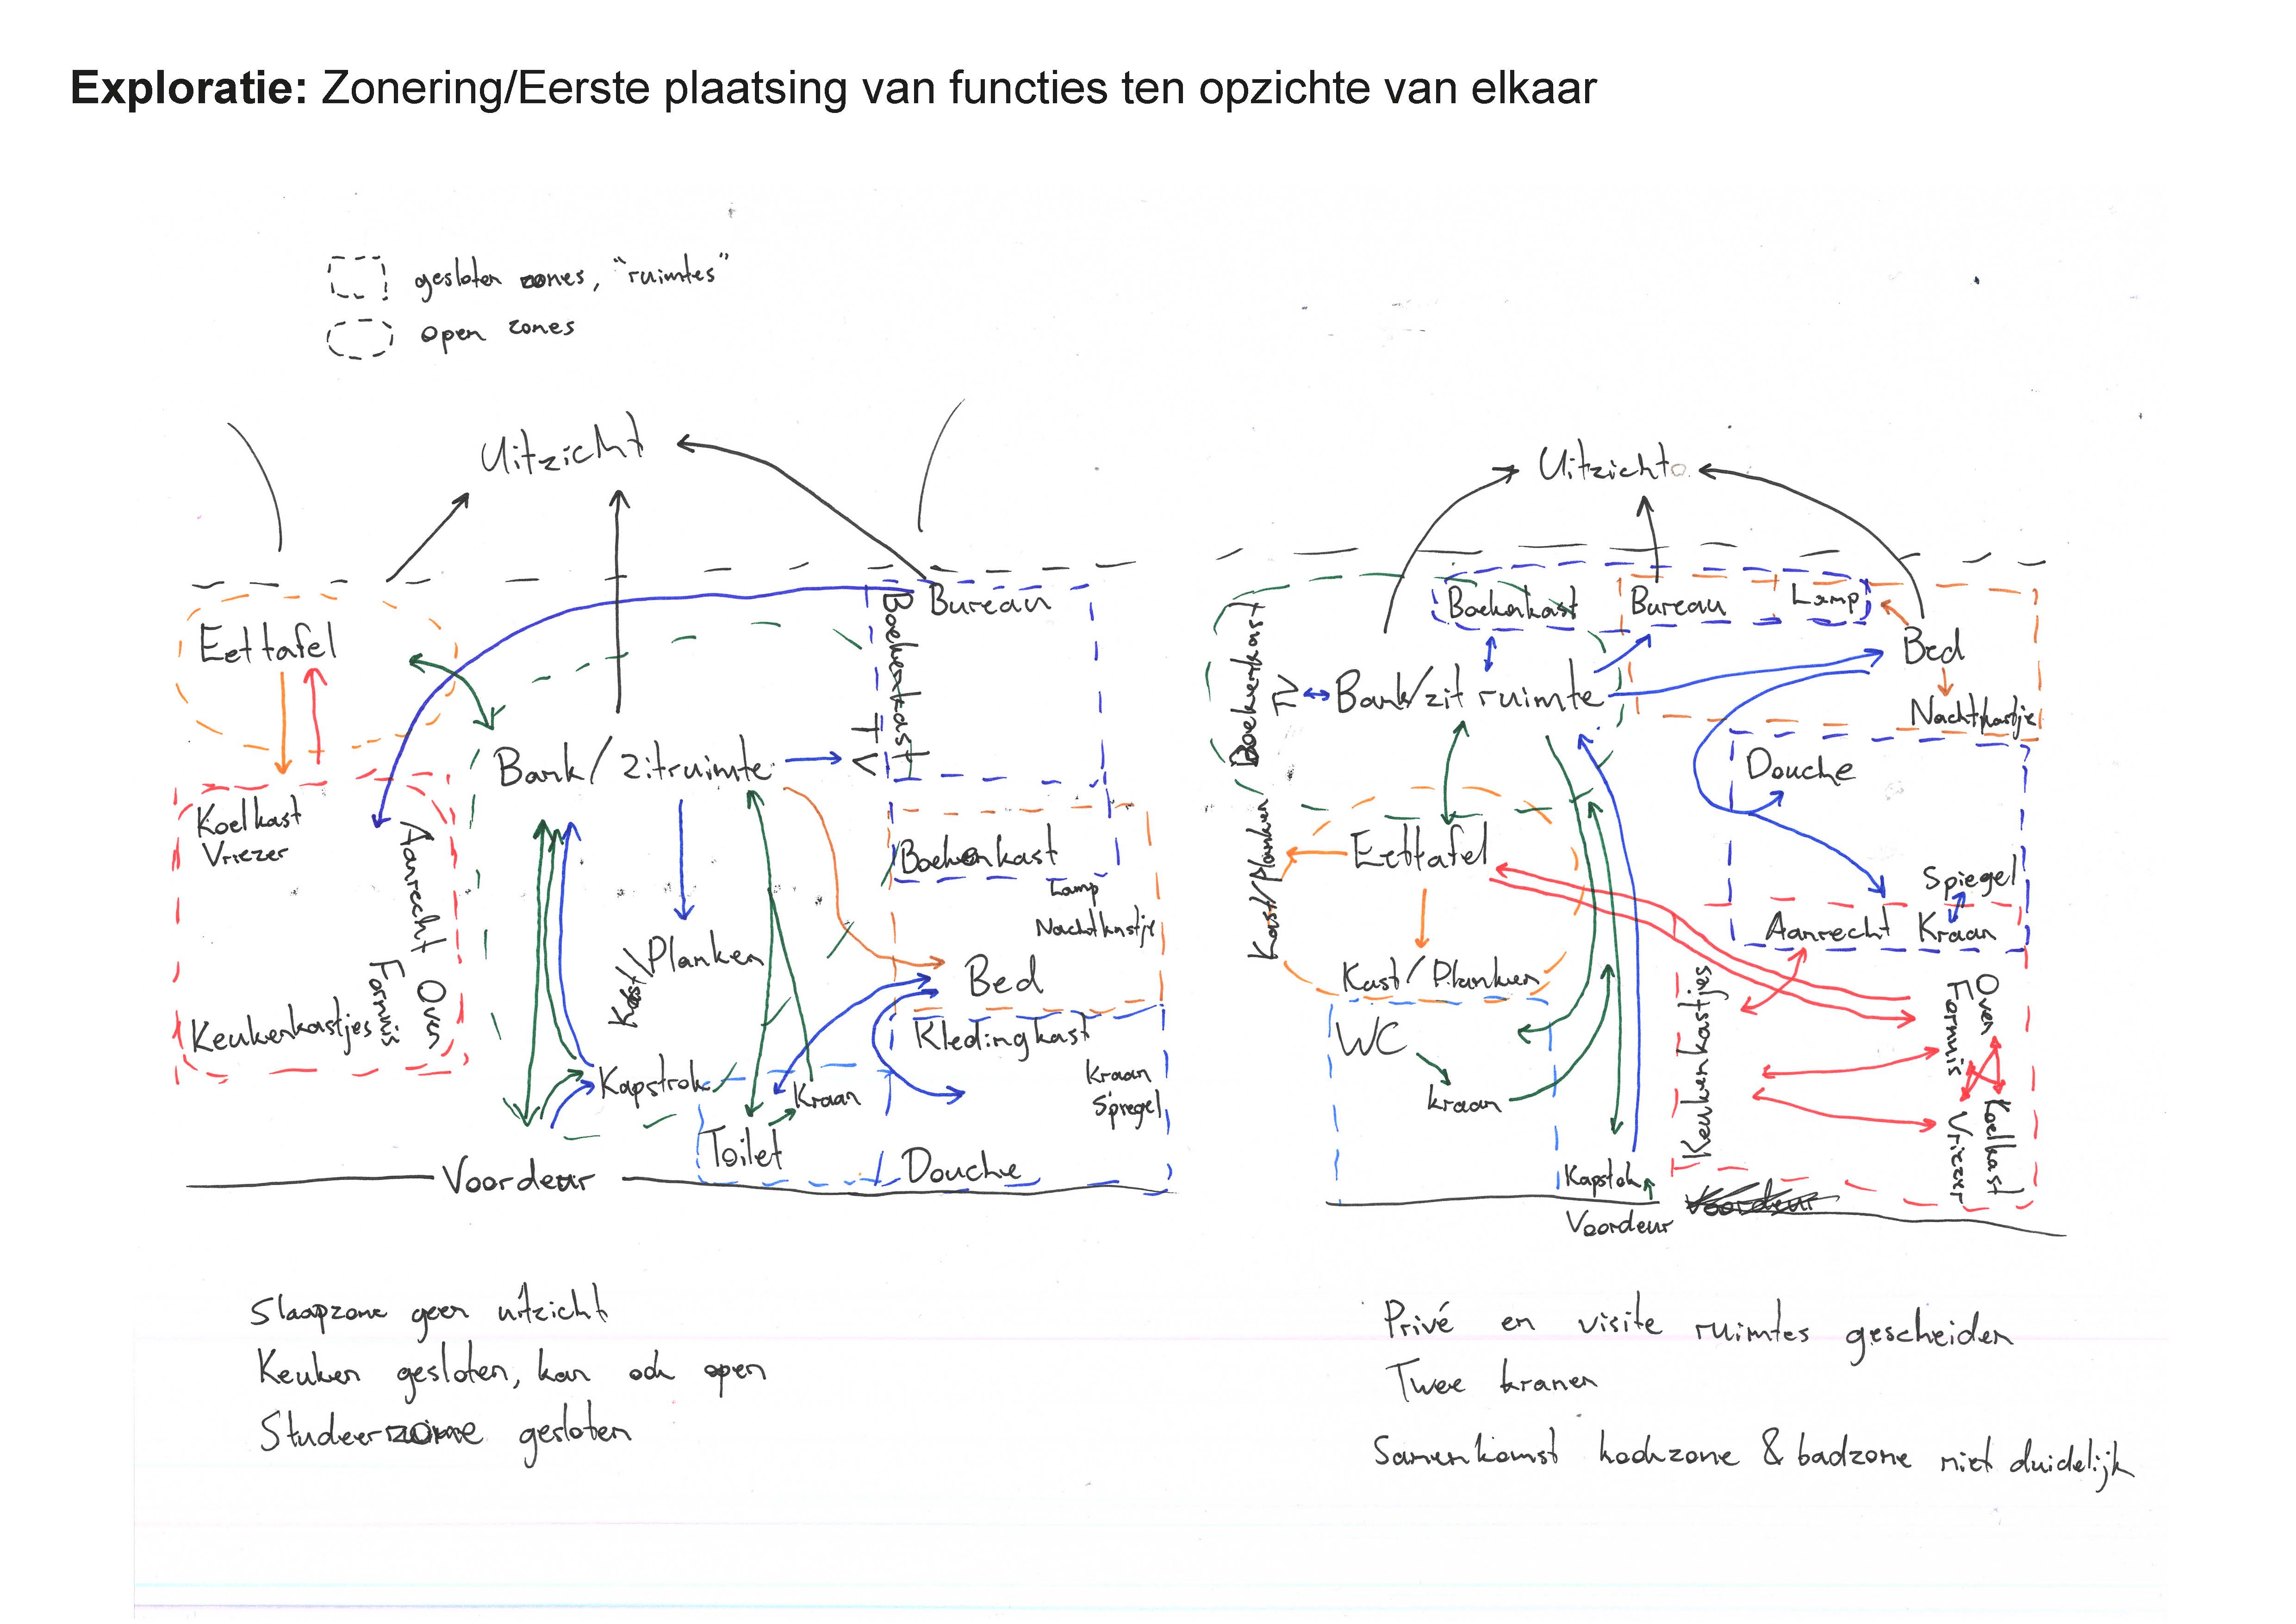 Exploratie: Zonering/Eerste plaatsing van functies ten opzichte van elkaar
gesloten zones, "ruimtes"
open zones
Uitzicht
Eettafel
Boekenkast
Bureau
TV
Bank/Zitruimte
Koelkast
Vriezer
Aanrecht
Oven
Fornuis
Keukenkastjes
Boekenkast
Lamp
Nachtkastje
Kast/Planken
Bed
Kledingkast
Kapstok
Kraan
Kraan
Spiegel
Toilet
Douche
Voordeur
Slaapzone geen uitzicht
Keuken gesloten, kan ook open
Studeerzone gesloten
Uitzicht
Boekenkast
Bureau
Lamp
Bed
Nachtkastje
Kast/Planken/Boekenkast
TV
Bank/zit ruimte
Douche
Eettafel
Spiegel
Aanrecht
Kraan
Kast/Planken
WC
kraan
Keukenkastjes
Oven
Fornuis
Koelkast
Vriezer
Kapstok
Voordeur
Voordeur
Privé en visite ruimtes gescheiden
Twee kranen
Samenkomst kookzone & badzone niet duidelijk